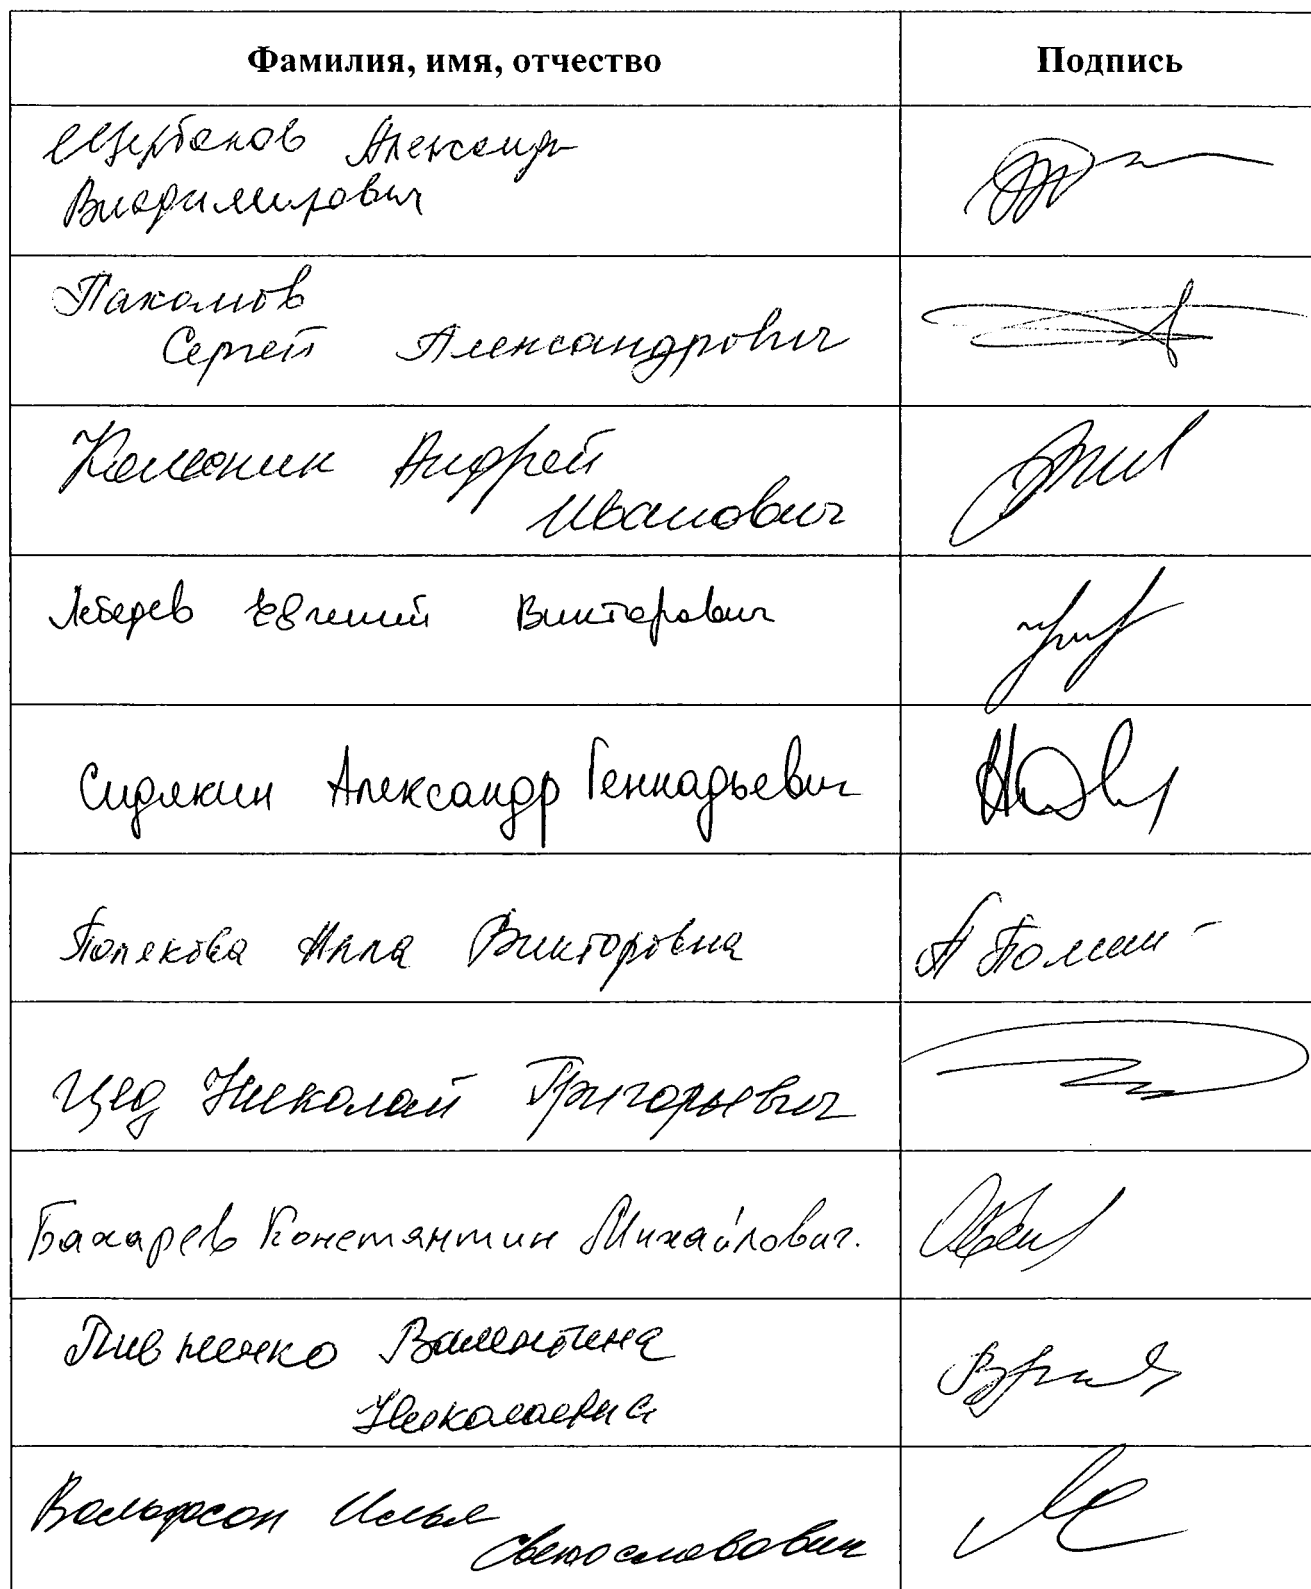 Фамилия, имя, отчество Подпись
Щербаков Александр
Владимирович
Пахомов
Сергей Александрович
Колесник Андрей
Иванович
Лебедев Евгений Викторович
Сидякин Александр Геннадьевич
Полякова Алла Викторовна
Цед Николай Григорьевич
Бахарев Константин Михайлович.
Пивненко Валентина
Николаевна
Вольфсон Илья
Светославович